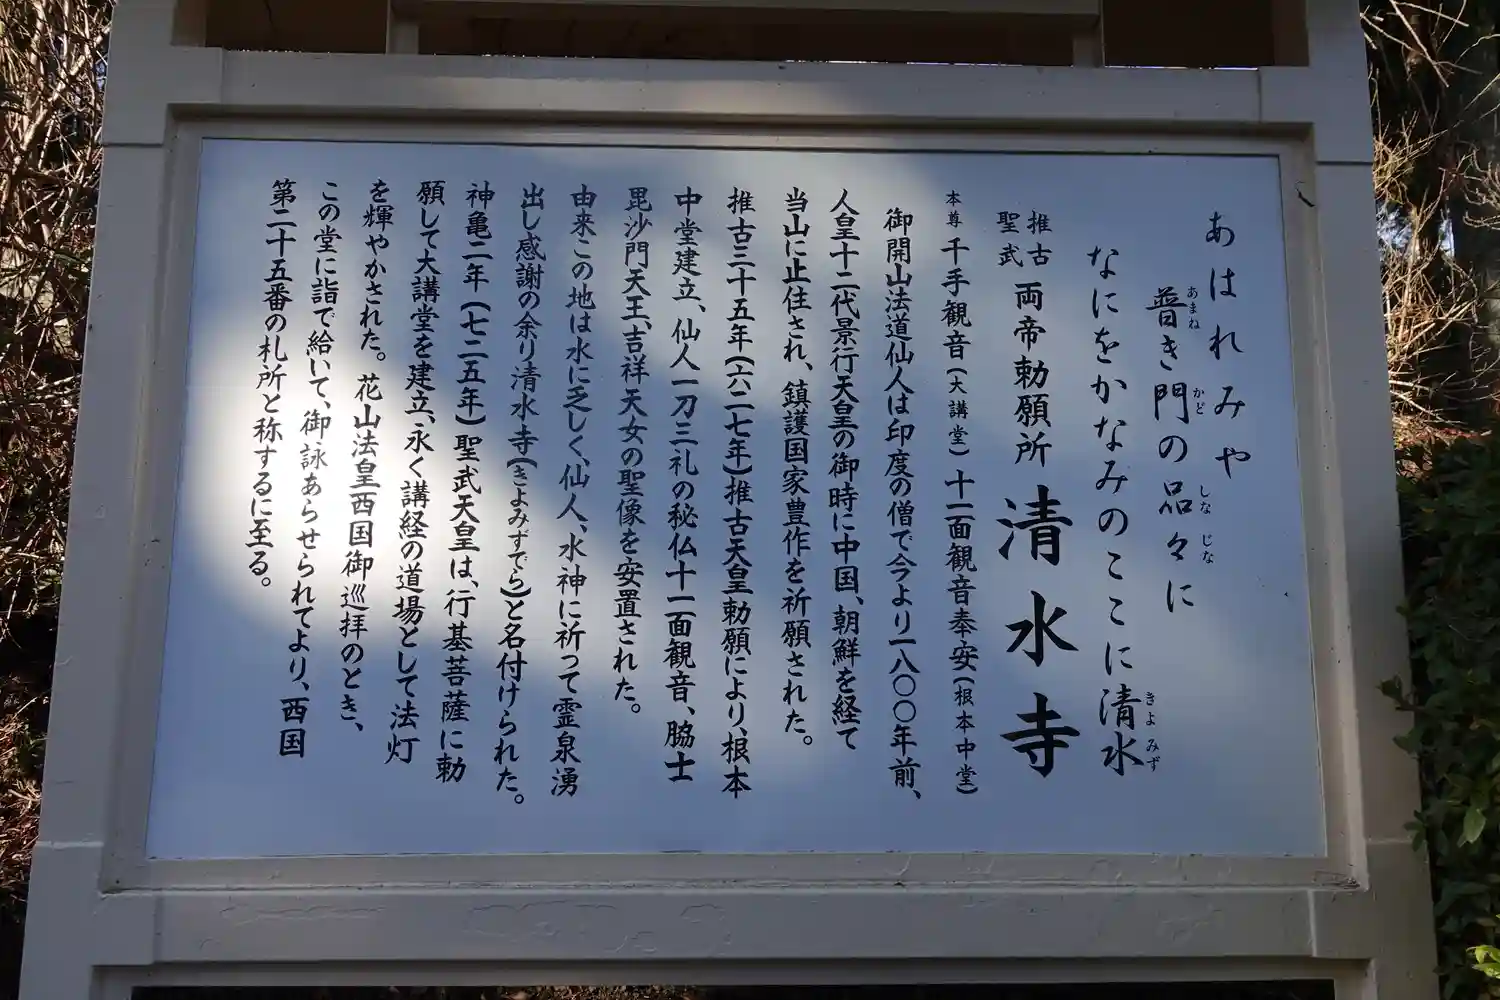 あはれみや
普き門の品々に
あまね かど しな じな
なにをかなみのここに清水
きよ みず
推古
聖武 両帝勅願所 清水寺
本尊 千手観音(大講堂) 十一面観音奉安(根本中堂)
御開山法道仙人は印度の僧で今より一八〇〇年前、
人皇十二代景行天皇の御時に中国、朝鮮を経て
当山に止住され、鎮護国家豊作を祈願された。
推古三十五年(六二七年)推古天皇勅願により、根本
中堂建立、仙人一刀三礼の秘仏十一面観音、脇士
毘沙門天王、吉祥天女の聖像を安置された。
由来この地は水に乏しく、仙人、水神に祈って霊泉湧
出し感謝の余り清水寺(きよみずでら)と名付けられた。
神亀二年(七二五年)聖武天皇は、行基菩薩に勅
願して大講堂を建立、永く講経の道場として法灯
を輝やかされた。花山法皇西国御巡拝のとき、
この堂に詣で給いて、御詠あらせられてより、西国
第二十五番の札所と称するに至る。